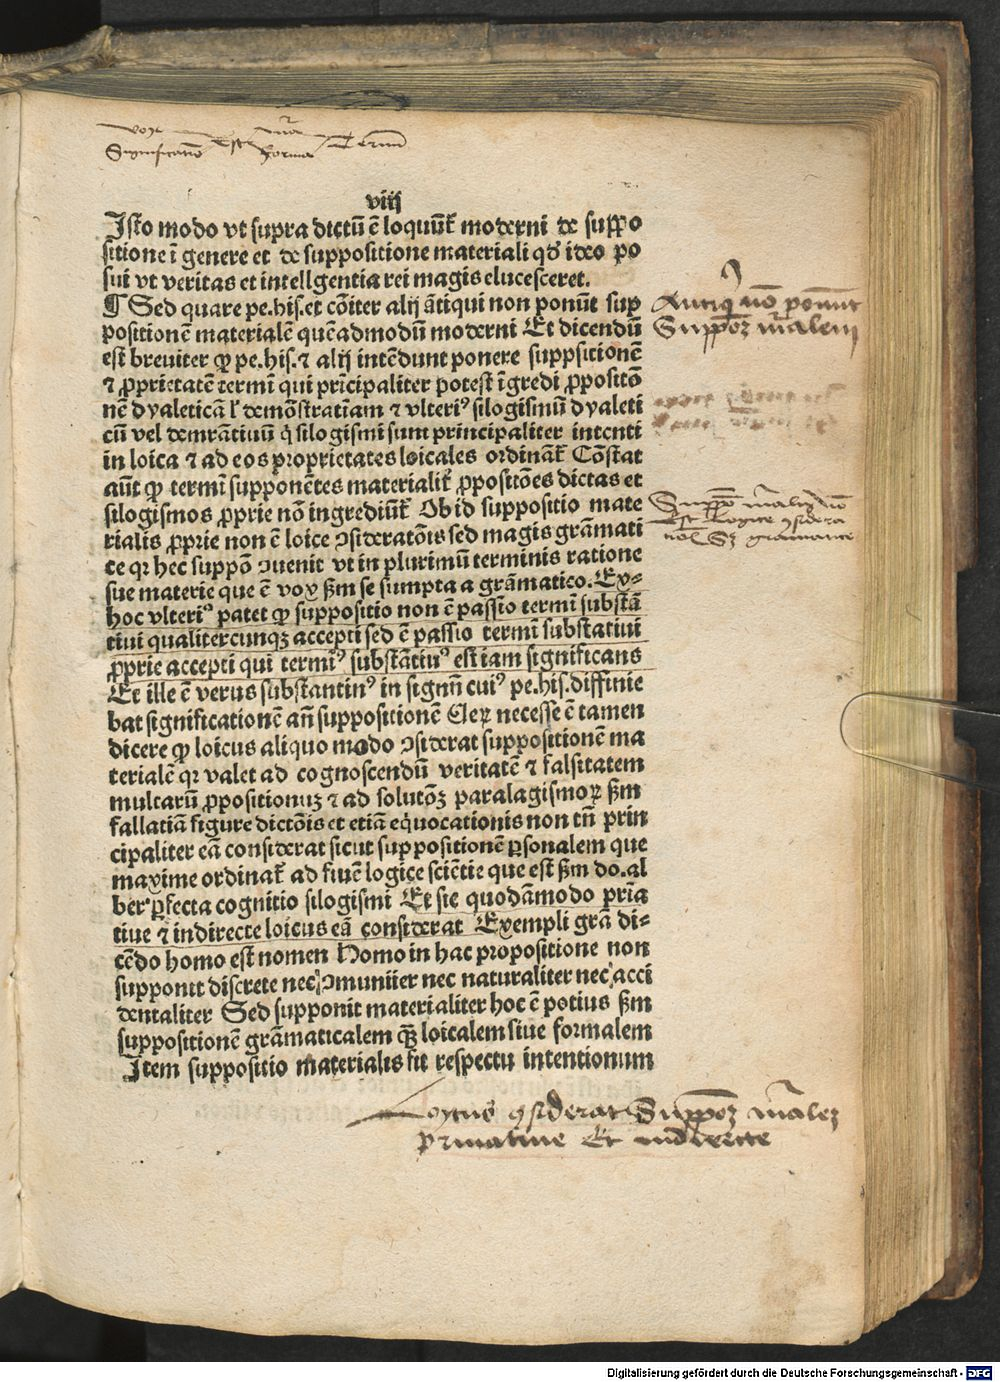 vox est mā Termī
Significatio forma
viij
Isto modo vt supra dictū ē loquūt᷑ moderni de suppo
sitione ī genere et de suppositione materiali qđ ideo po
sui vt veritas et intellgentia rei magis elucesceret.
¶ Sed quare pe.his.et cōiter alij ātiqui non ponūt sup
positionem materialē quēadmodū moderni Et dicendū
est breuiter ꝙ pe.his.⁊ alij intēdunt ponere suppsitionē
⁊ ꝓprietatē termī qui prīcipaliter potest īgredi ꝓpositō
nē dyaleticā lꝰ demōstratīam ⁊ vlteriꝰ silogismū dyaleti
cū vel demrātiuū q̇ silogismi sunt principaliter intenti
in loica ⁊ ad eos proprietates loicales ordināt᷑ Cōstat
aūt ꝙ termī supponētes materialit᷑ ꝓpositōes dictas et
silogismos ꝓprie nō ingrediūt᷑ Ob id suppositio mate
rialis ꝓprie non ē loice ꝯsideratōis sed magis grāmati
ce qꝛ hec suppō ꝯuenit vt in plurimū terminis ratione
sue materie que ē vox ẜm se sumpta a grāmatico. Ex-
hoc vlteriꝰ patet ꝙ suppositio non ē passio termī substā
tiui qualitercunqꝫ accepti sed ē passio termī substātiui
ꝓprie accepti qui termīꝰ substātiuꝰ est iam significans
Et ille ē verus substantiuꝰ in signū cuiꝰ pe.his.diffinie
bat significationē añ suppositionē Uerꝫ necesse ē tamen
dicere ꝙ loicus aliquo modo ꝯsiderat suppositionē ma
terialē qꝛ valet ad cognoscendū veritatē ⁊ falsitatem
multarū ꝓpositionuꝫ ⁊ ad solutōꝫ paralagismoꝝ ẜm
fallatiā figure dictōis et etiā eq̇uocationis non tñ prin
cipaliter eā considerat sicut suppositionē ꝑsonalem que
maxime ordinat᷑ ad finē logice sciētie que est ẜm do.al
ber.ꝑfecta cognitio silogismi Et sic quodāmodo priua
tiue ⁊ indirecte loicus eā considerat Exempli grā di-
cēdo homo est nomen Homo in hac propositione non
supponit discrete nec ꝯmuniter nec naturaliter nec acci
dentaliter Sed supponit materialiter hoc ē potius ẜm
suppositionē grāmaticalem qꝫ loicalem siue formalem
Item suppositio materialis fit respectu intentionum
Antiq̇ nō ponūt
Suppōꝫ mālem
Suppō mālis nō
est logice ꝯsidera
tiōis Sꝫ grāmatice
Loycus ꝯsiderat Suppōꝫ māleꝫ
priuatiue Et indirecte
Digitalisierung gefördert durch die Deutsche Forschungsgemeinschaft - DFG